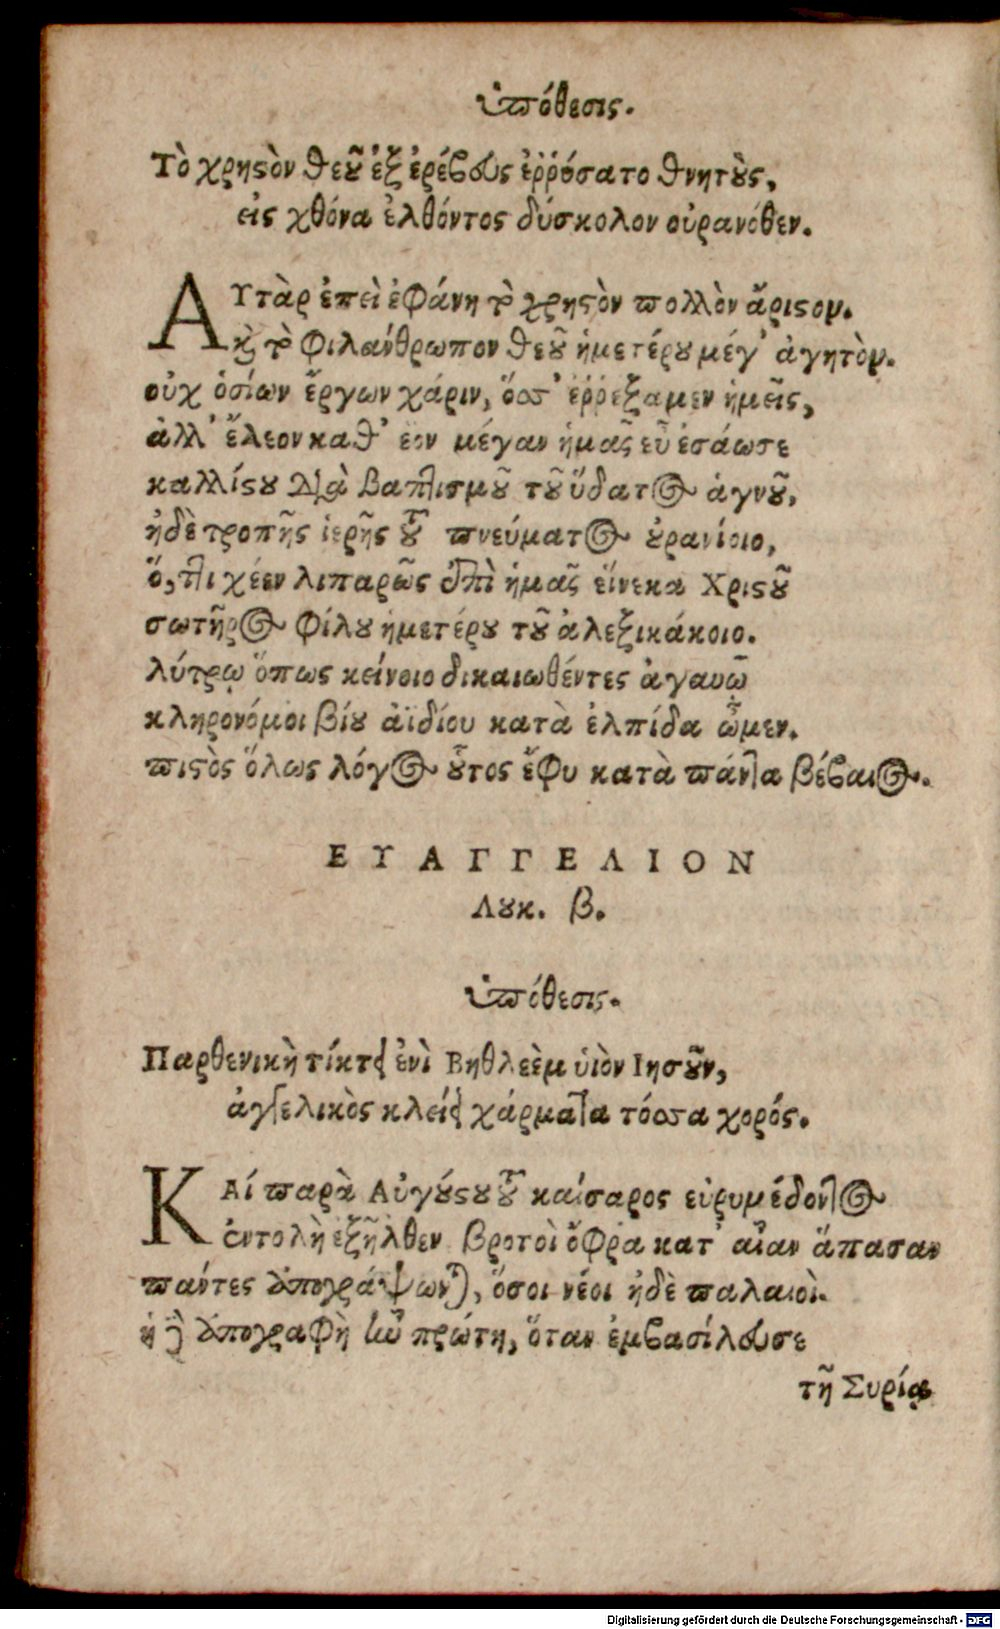 ὑπόθεσις.
Τὸ χρηστὸν θεοῦ ἐξ ἐρέβους ἐῤῥύσατο θνητοὺς,
εἰς χθόνα ἐλθόντος δύσκολον οὐρανόθεν.
ΑΥτὰρ ἐπεὶ ἐφάνη τὸ χρηστὸν πολλὸν ἄριστον.
καὶ τὸ φιλάνθρωπον θεοῦ ἡμετέρου μέγ' ἀγητὸν.
οὐχ ὁσίων ἔργων χάριν, ὅσσ' ἐῤῥέξαμεν ἡμεῖς,
ἀλλ' ἔλεον καθ' ἑὸν μέγαν ἡμᾶς εὖ ἐσάωσε
καλλίστου διὰ βαπτισμοῦ τοῦ ὕδατος ἁγνοῦ,
ἠδὲ τροπῆς ἱερῆς τοῦ πνεύματος οὐρανίοιο,
ὅ,τι χέεν λιπαρῶς ἐπὶ ἡμᾶς εἵνεκα Χριστοῦ
σωτῆρος φίλου ἡμετέρου τοῦ ἀλεξικάκοιο.
λύτρῳ ὅπως κείνοιο δικαιωθέντες ἀγαυῷ
κληρονόμοι βίου ἀϊδίου κατὰ ἐλπίδα ὦμεν.
πιστὸς ὅλως λόγος οὗτος ἔφυ κατὰ πάντα βέβαιος.
ΕΥΑΓΓΕΛΙΟΝ
Λουκ. β.
ὑπόθεσις.
Παρθενικὴ τίκτει ἐνὶ Βηθλεὲμ υἱὸν Ιησοῦν,
ἀγγελικὸς κλείει χάρματα τόσσα χορός.
ΚΑί παρὰ Αὐγούστου τοῦ καίσαρος εὐρυμέδοντος
ἐντολὴ ἐξῆλθεν βροτοὶ ὄφρα κατ' αἶαν ἅπασαν
πάντες ἀπογράψωνται, ὅσοι νέοι ἠδὲ παλαιοὶ.
ἡ δὲ ἀπογραφὴ ἦν πρώτη, ὅταν ἐμβασίλευσε
τῇ Συρίᾳ
Digitalisierung gefördert durch die Deutsche Forschungsgemeinschaft - DFG